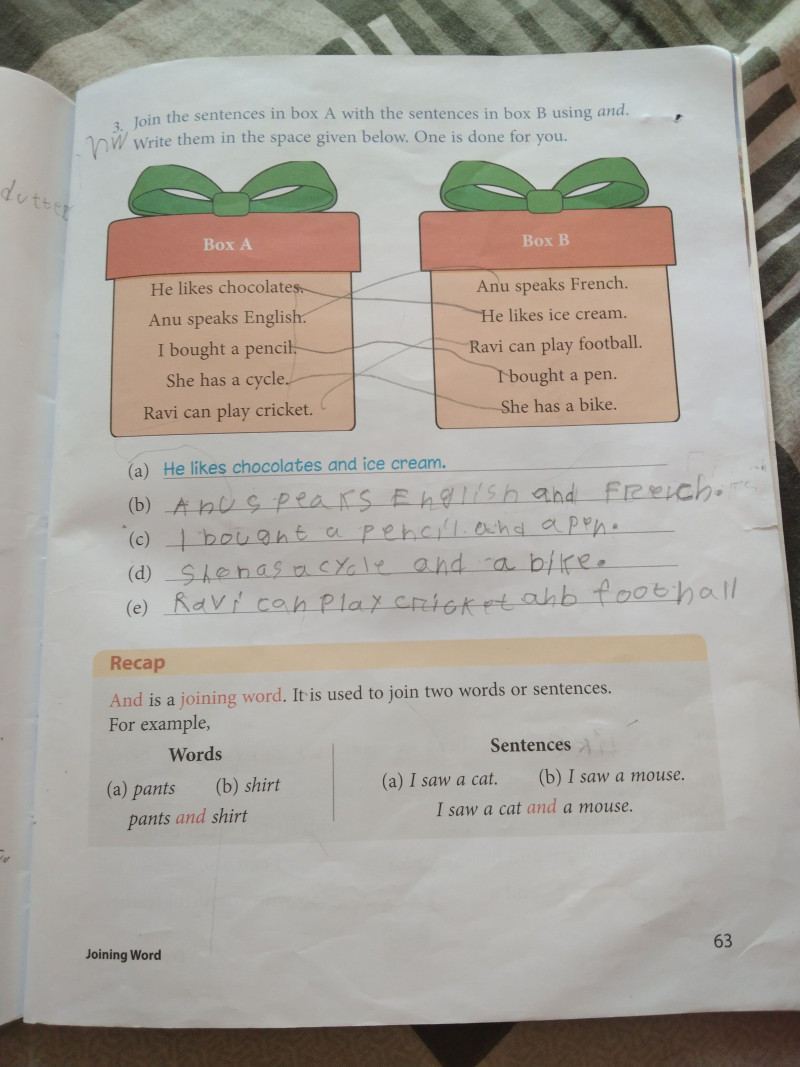 3. Join the sentences in box A with the sentences in box B using and.
HW Write them in the space given below. One is done for you.
Box A
He likes chocolates.
Anu speaks English.
I bought a pencil.
She has a cycle.
Ravi can play cricket.
Box B
Anu speaks French.
He likes ice cream.
Ravi can play football.
I bought a pen.
She has a bike.
(a) He likes chocolates and ice cream.
(b) Anu speaks English and French.
(c) I bought a pencil and a pen.
(d) She has a cycle and a bike.
(e) Ravi can play cricket anb football
Recap
And is a joining word. It is used to join two words or sentences.
For example,
Words
(a) pants (b) shirt
pants and shirt
Sentences
(a) I saw a cat. (b) I saw a mouse.
I saw a cat and a mouse.
Joining Word
63